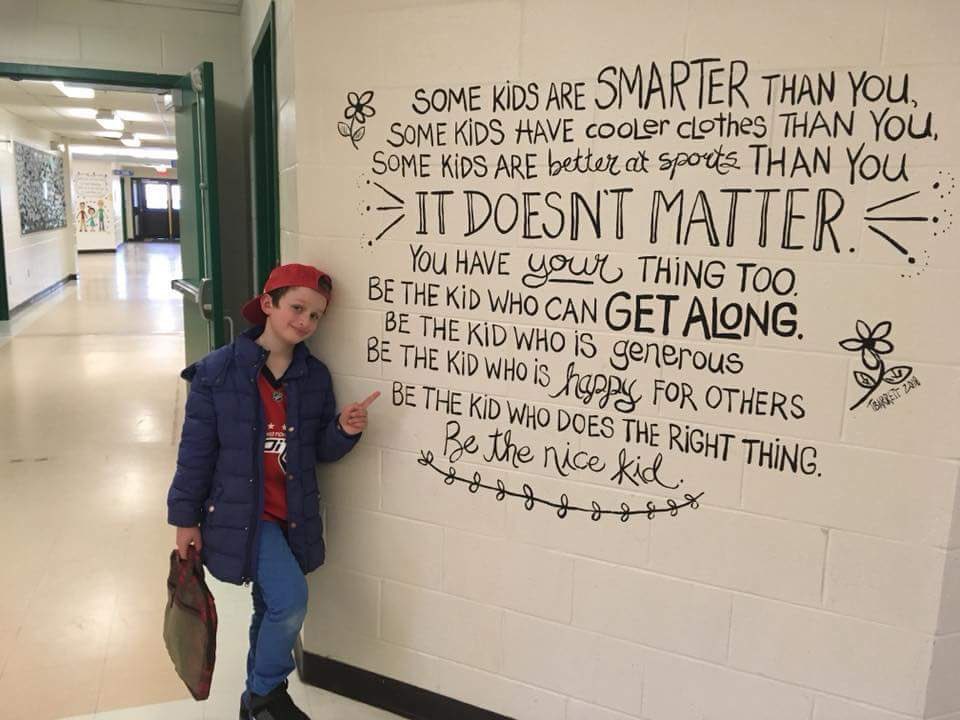 SOME KIDS ARE SMARTER THAN YOU,
SOME KIDS HAVE COOLER CLOTHES THAN YOU,
SOME KIDS ARE better at sports THAN YOU
IT DOESN'T MATTER.
YOU HAVE your THING TOO.
BE THE KID WHO CAN GET ALONG.
BE THE KID WHO IS generous
BE THE KID WHO IS happy FOR OTHERS
BE THE KID WHO DOES THE RIGHT THING.
Be the nice kid.